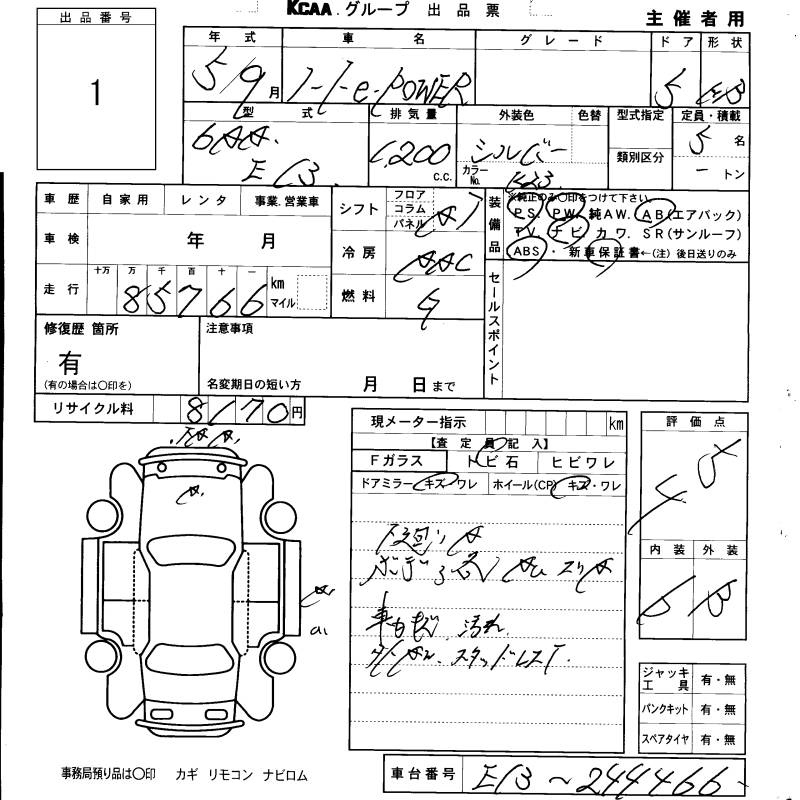 KCAA グループ 出品票
主催者用
出品番号
1
年式 車名 グレード ドア 形状
5/9月 ノートe-POWER 5 HB
型式 排気量 外装色 色替 型式指定 定員・積載
6AA. 1,200 c.c. シルバー 類別区分 5名
E13 カラーNo. K23 ートン
車歴 自家用 レンタ 事業.営業車
シフト フロア コラム パネル A
装備品 ※純正のみ〇印をつけて下さい。
P.S. P.W. 純AW. AB(エアバック)
TV. ナビ. カワ. SR(サンルーフ)
ABS・新車保証書←(注)後日送りのみ
車検 年 月
冷房 AAC
走行 十万 万 千 百 十 一
85766 km マイル
燃料 G
セールスポイント
修復歴 箇所
有
(有の場合は〇印を)
注意事項
名変期日の短い方 月 日まで
リサイクル料 8170円
現メーター指示 km
【査定員記入】
Fガラス トビ石 ヒビワレ
ドアミラー キズ・ワレ ホイール(CP) キズ・ワレ
評価点
4.5
内装 外装
B B
下廻り A
ボディ各 スリA
車内 汚れ
スタッドレス
A1
ジャッキ工具 有・無
パンクキット 有・無
スペアタイヤ 有・無
事務局預り品は〇印 カギ リモコン ナビロム
車台番号 E13~244466